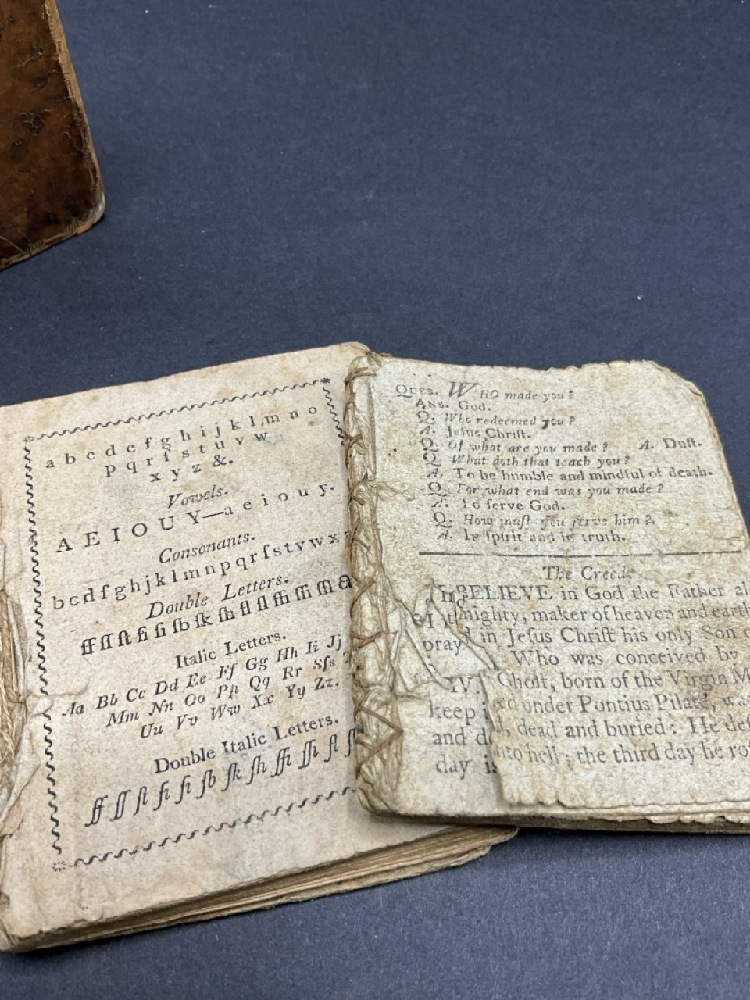 a b c d e f g h i j k l m n o
p q r ſ s t u v w
x y z &.
Vowels.
A E I O U Y—a e i o u y.
Consonants.
b c d f g h j k l m n p q r ſ s t v w x z
Double Letters.
Italic Letters.
Aa Bb Cc Dd Ee Ff Gg Hh Ii Jj
Mm Nn Oo Pp Qq Rr Sſs
Uu Vv Ww Xx Yy Zz.
Double Italic Letters.
QUES. WHO made you?
ANS. God.
Q. Who redeemed you?
A. Jeſus Chriſt.
Q. Of what are you made? A. Duſt.
Q. What doth that teach you?
A. To be humble and mindful of death.
Q. For what end was you made?
A. To ſerve God.
Q. How muſt you ſerve him?
A. In ſpirit and in truth.
The Creed.
I BELIEVE in God the Father al
mighty, maker of heaven and earth
in Jeſus Chriſt his only Son
pray Who was conceived by
Ghoſt, born of the Virgin M
keep under Pontius Pilate, wa
and dead and buried: He deſ
day is into hell; the third day he ro